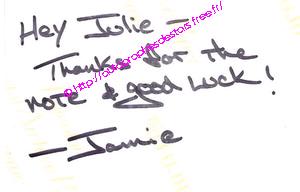 Hey Julie –
Thanks for the
note & good luck!
– Jamie
© http://autographedestars.free.fr/